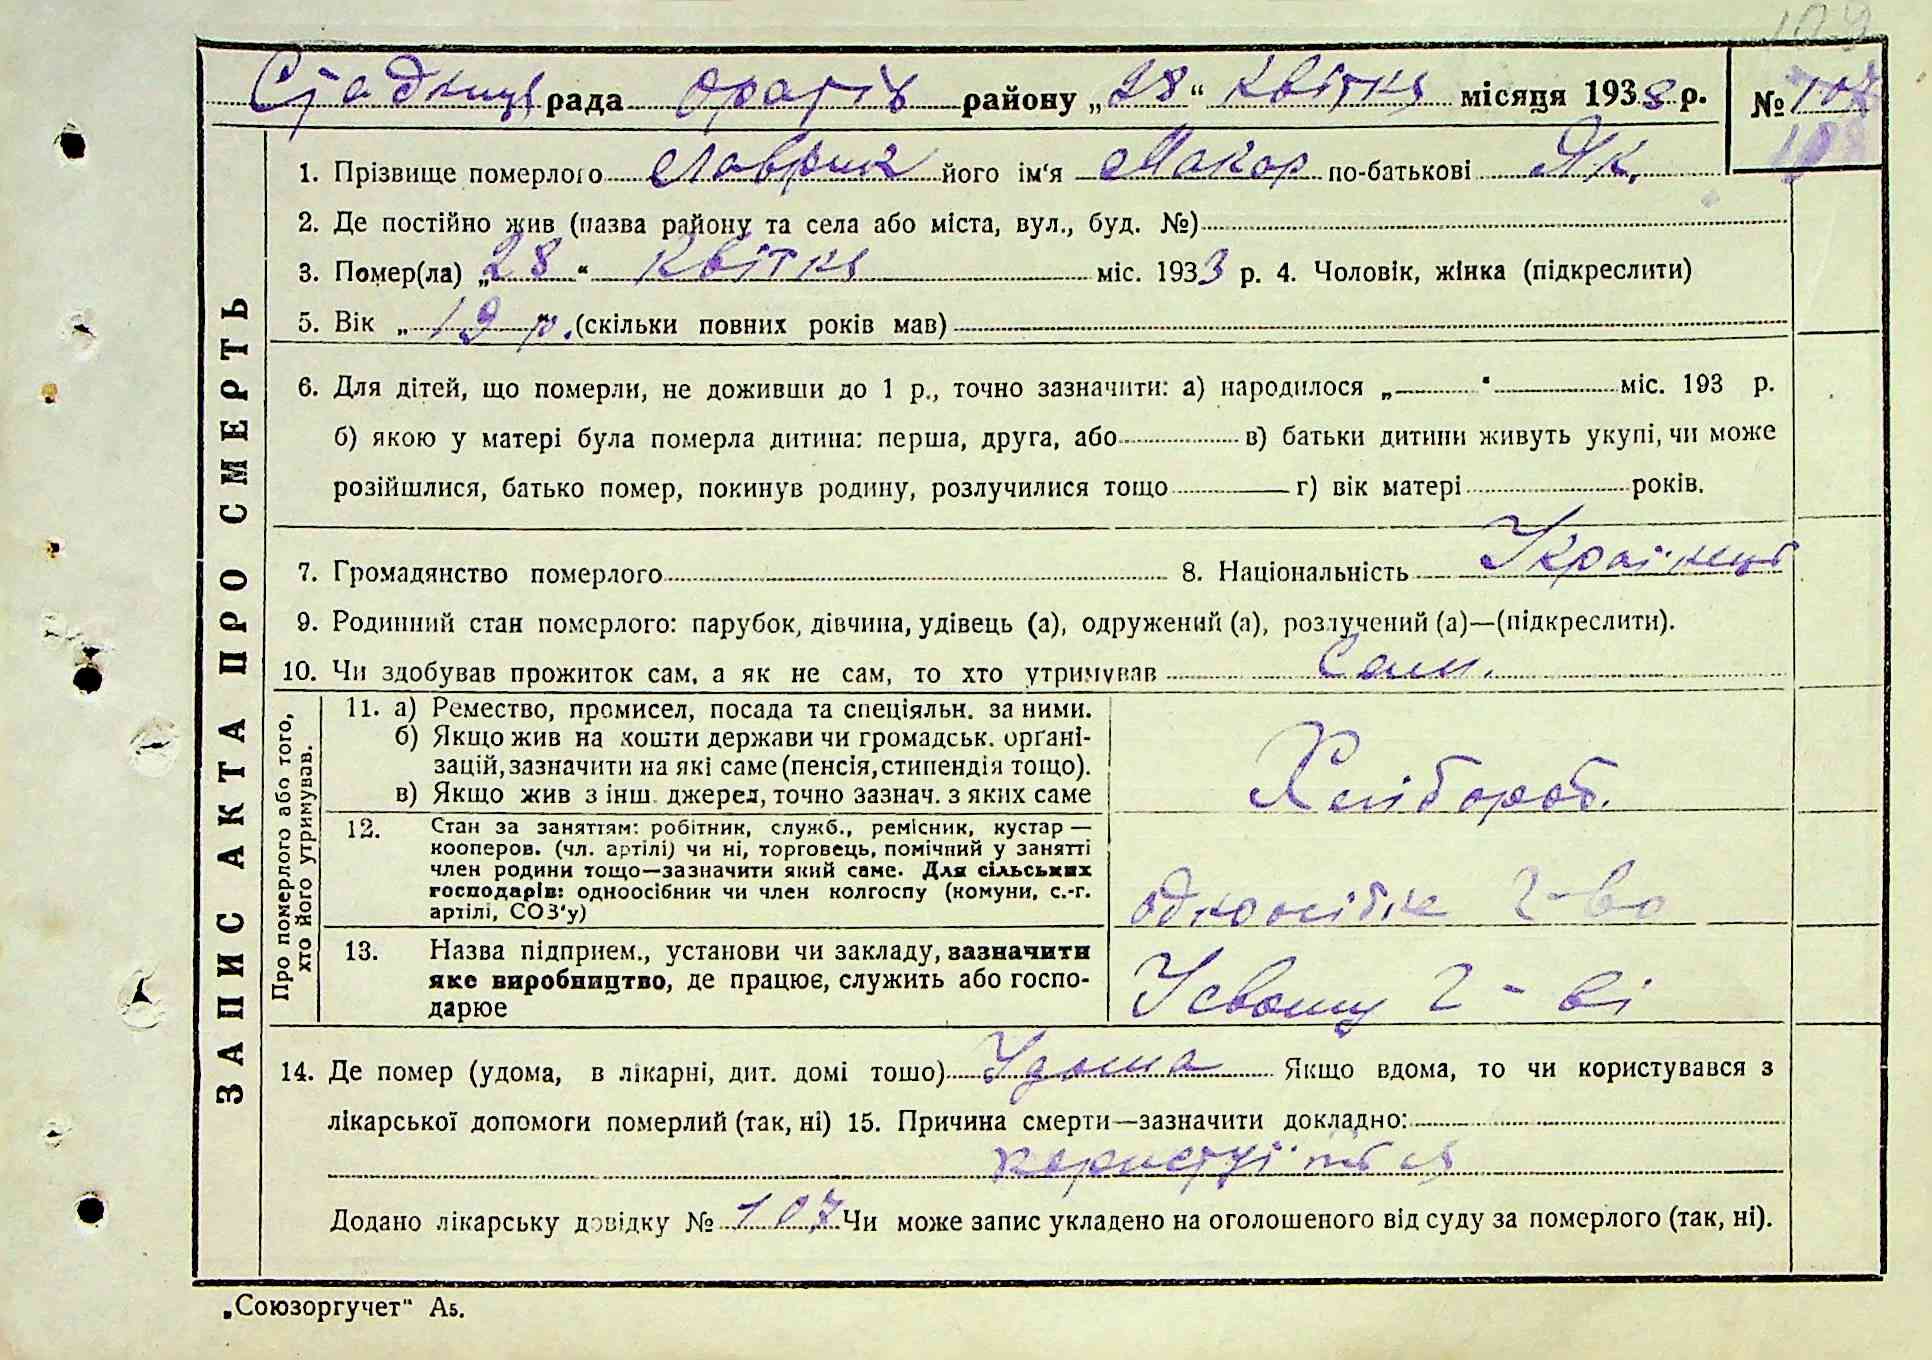 109
Стадниця рада Оратів району „28“ квітня місяця 1938 р. № 107
108
ЗАПИС АКТА ПРО СМЕРТЬ
1. Прізвище померлого Лаврик його ім'я Макар по-батькові Як.
2. Де постійно жив (назва району та села або міста, вул., буд. №)
3. Помер(ла) „28“ квітня міс. 1933 р. 4. Чоловік, жінка (підкреслити)
5. Вік „19 р. (скільки повних років мав)
6. Для дітей, що померли, не доживши до 1 р., точно зазначити: а) народилося „ “ міс. 193 р.
б) якою у матері була померла дитина: перша, друга, або в) батьки дитини живуть укупі, чи може
розійшлися, батько помер, покинув родину, розлучилися тощо г) вік матері років.
7. Громадянство померлого 8. Національність Українець
9. Родинний стан померлого: парубок, дівчина, удівець (а), одружений (а), розлучений (а)—(підкреслити).
10. Чи здобував прожиток сам, а як не сам, то хто утримував Сам.
Про померлого або того, хто його утримував.
11. а) Ремество, промисел, посада та спеціяльн. за ними.
б) Якщо жив на кошти держави чи громадськ. органі-
зацій, зазначити на які саме (пенсія, стипендія тощо).
в) Якщо жив з інш. джерел, точно зазнач. з яких саме
Хлібороб.
12. Стан за заняттям: робітник, служб., ремісник, кустар —
кооперов. (чл. артілі) чи ні, торговець, помічний у занятті
член родини тощо—зазначити який саме. Для сільських
господарів: одноосібник чи член колгоспу (комуни, с.-г.
артілі, СОЗ'у)
одноосібне г-во
13. Назва підприєм., установи чи закладу, зазначити
яке виробництво, де працює, служить або госпо-
дарює
У свому г-ві
14. Де помер (удома, в лікарні, дит. домі тощо) Удома Якщо вдома, то чи користувався з
лікарської допомоги померлий (так, ні) 15. Причина смерти—зазначити докладно:
Додано лікарську довідку № 107 Чи може запис укладено на оголошеного від суду за померлого (так, ні).
„Союзоргучет" А5.